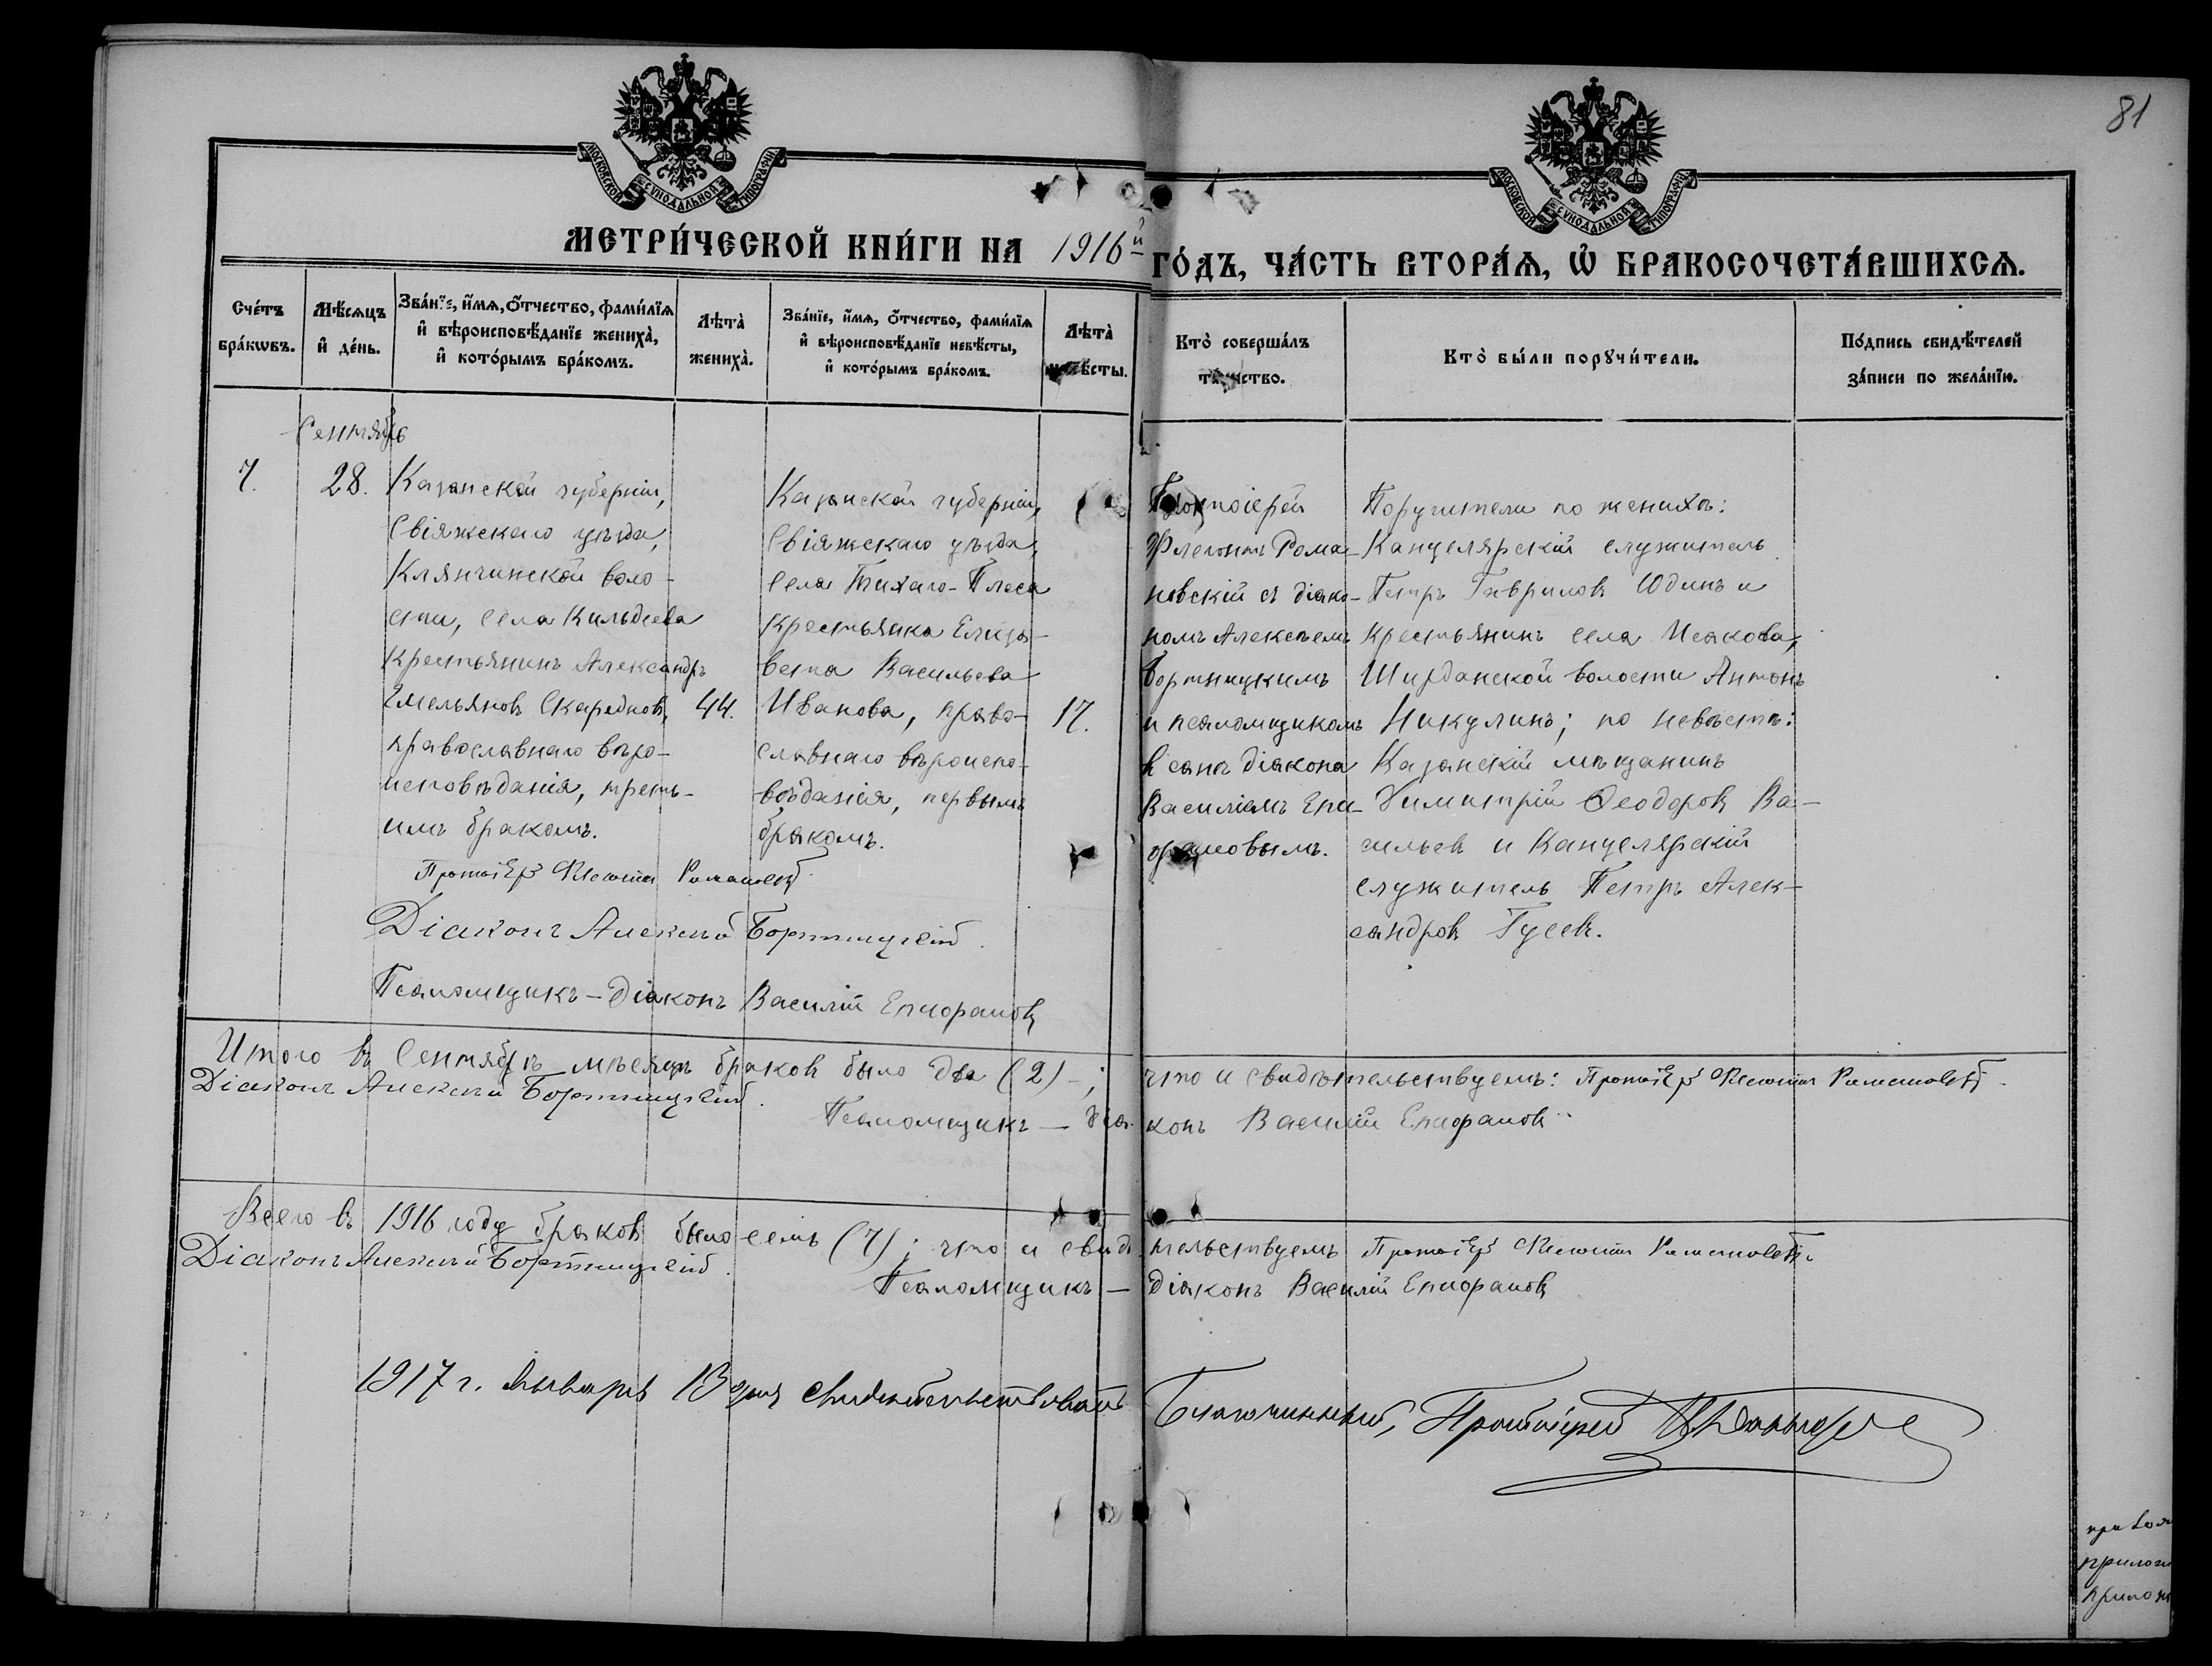 81
МОСКОВСКОЙ СѴНОДАЛЬНОЙ ТИПОГРАФІИ
МОСКОВСКОЙ СѴНОДАЛЬНОЙ ТИПОГРАФІИ
МЕТРИ́ЧЕСКОЙ КНИ́ГИ НА 1916й ГО́ДЪ, ЧА́СТЬ ВТОРА́Ѧ, Ѡ҆ БРАКОСОЧЕТА́ВШИХСѦ.
Сче́тъ бра́кѡвъ.
Мѣ́сѧцъ и҆ де́нь.
Зва́нїе, и҆́мѧ, ѻ҆́тчество, фами́лїѧ
и҆ вѣроисповѣ́данїе жениха̀,
и҆ кото́рымъ бра́комъ.
Лѣта̀ жениха̀.
Зва́нїе, и҆́мѧ, ѻ҆́тчество, фами́лїѧ
и҆ вѣроисповѣ́данїе невѣ́сты,
и҆ кото́рымъ бра́комъ.
Лѣта̀ невѣ́сты.
Кто̀ соверша́лъ
та́инство.
Кто̀ бы́ли порꙋчи́тели.
По́дпись свидѣ́телей
за́писи по жела́нїю.
Сентябрь
7.
28.
Казанской губерніи,
Свіяжскаго уѣзда,
Клянчинской воло-
сти, села Кильдеева
крестьянинъ Александръ
Емельяновъ Скаредновъ,
православнаго вѣро-
исповѣданія, треть-
имъ бракомъ.
44.
Казанской губерніи,
Свіяжскаго уѣзда,
села Тихаго-Плеса
крестьянка Елиза-
вета Васильева
Иванова, право-
славнаго вѣроиспо-
вѣданія, первымъ
бракомъ.
17.
Протоіерей
Флегонтъ Рома-
новскій съ діако-
номъ Алексѣемъ
Бортницкимъ
и псаломщикомъ
въ санѣ діакона
Василіемъ Епи-
форановымъ.
Поручители по женихѣ:
Канцелярскій служитель
Петръ Гавриловъ Юдинъ и
крестьянинъ села Исакова,
Ширданской волости Антонъ
Никулинъ; по невѣстѣ:
Казанскій мѣщанинъ
Димитрій Ѳеодоровъ Ва-
сильевъ и Канцелярскій
служитель Петръ Алек-
сандровъ Гусевъ.
Протоіер Флегонтъ Романовскій
Діаконъ Алексѣй Бортницкій.
Псаломщикъ-діаконъ Василій
Итого въ Сентябрѣ мѣсяцѣ браковъ было два (2)-; что и свидѣтельствуемъ: Протоіер Флегонтъ Романовскій.
Діаконъ Алексѣй Бортницкій.
Псаломщикъ-діаконъ Василій
Всего въ 1916 году браковъ было семь (7); что и свидѣтельствуемъ Протоіер Флегонтъ Романовскій.
Діаконъ Алексѣй Бортницкій.
Псаломщикъ-діаконъ Василій
1917 г. Января 13 дня свидѣтельствовалъ Благочинный, Протоіерей